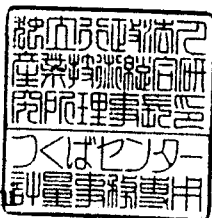 独立行政法人
産業技術総合研
究所理事長印
つくばセンター
計量事務専用